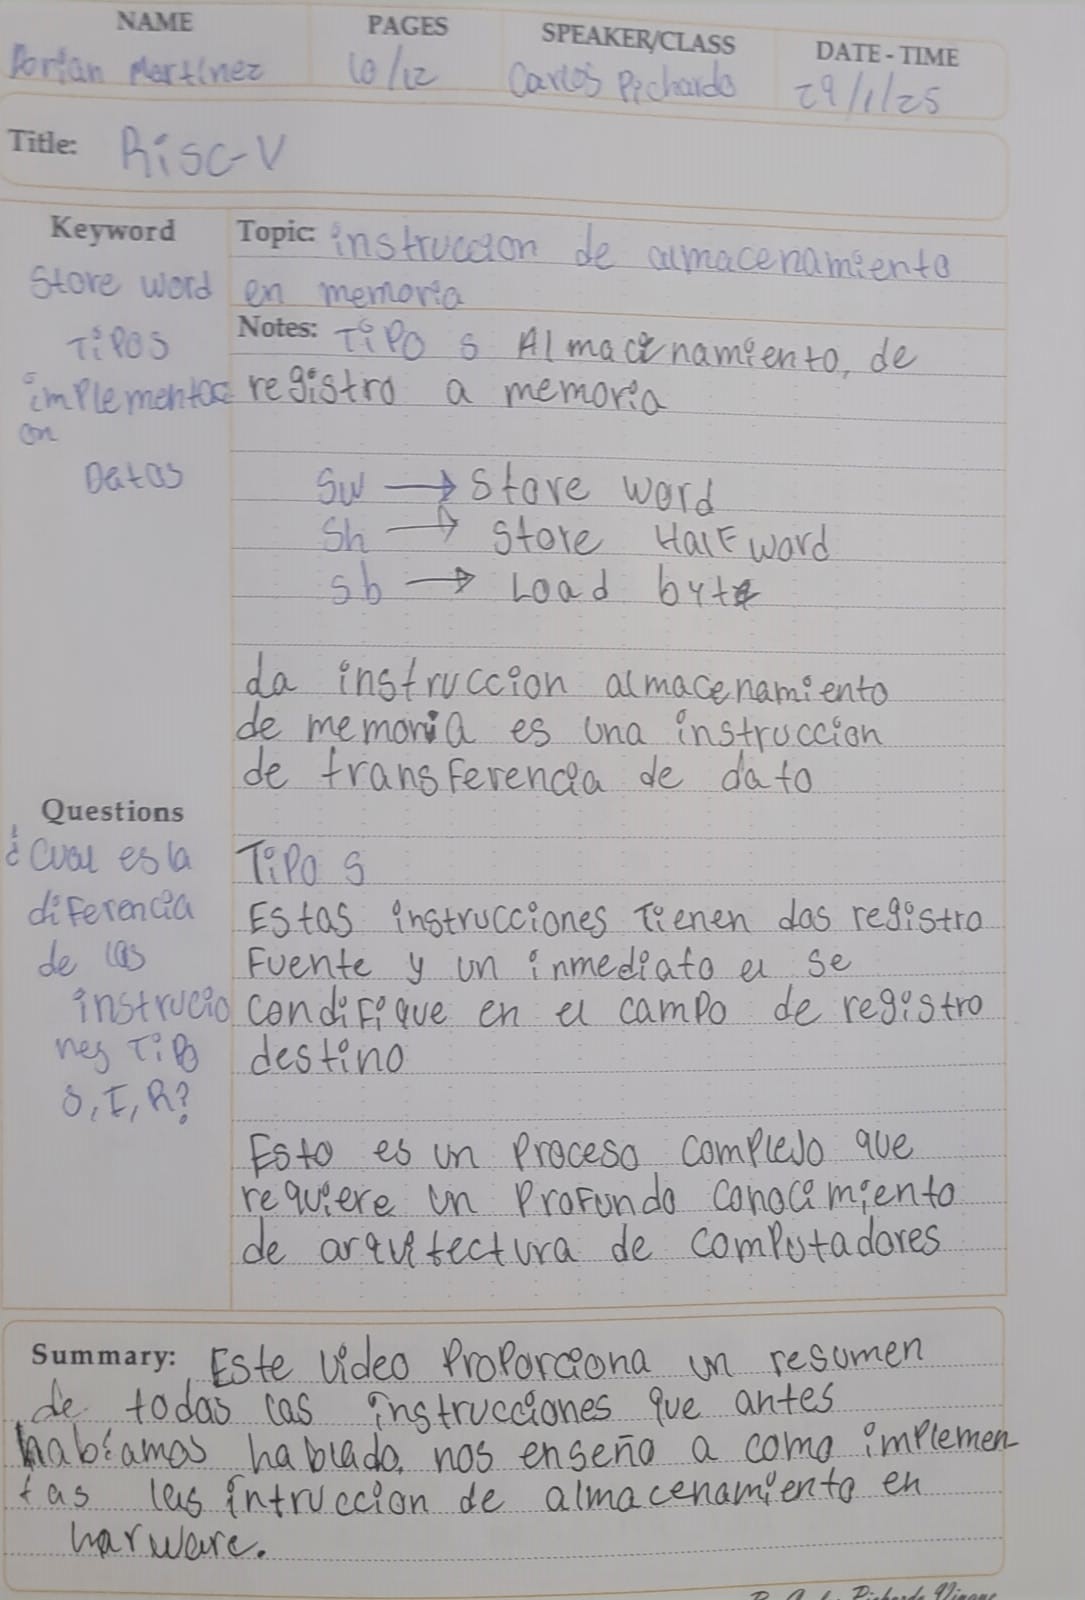 NAME
PAGES
SPEAKER/CLASS
DATE - TIME
Dorian Martinez
10/12
Carlos Pichardo
29/1/25
Title: Risc-V
Keyword
Store word
Tipo S
implementaci
on
Datos
Topic: instruccion de almacenamiento
en memoria
Notes: Tipo S Almacenamiento, de
registro a memoria
Sw → Store word
Sh → Store Half word
sb → Load byte
La instruccion almacenamiento
de memoria es una instruccion
de transferencia de dato
Questions
¿Cual es la
diferencia
de las
instruccio
nes Tipo
S, I, R?
Tipo S
Estas instrucciones Tienen dos registro
Fuente y un inmediato el se
condifique en el campo de registro
destino
Esto es un Proceso complejo que
requiere un Profundo conocimiento
de arquitectura de computadores
Summary: Este video Proporciona un resumen
de todas las instrucciones que antes
habíamos hablado, nos enseño a como implemen
tas las intruccion de almacenamiento en
harware.